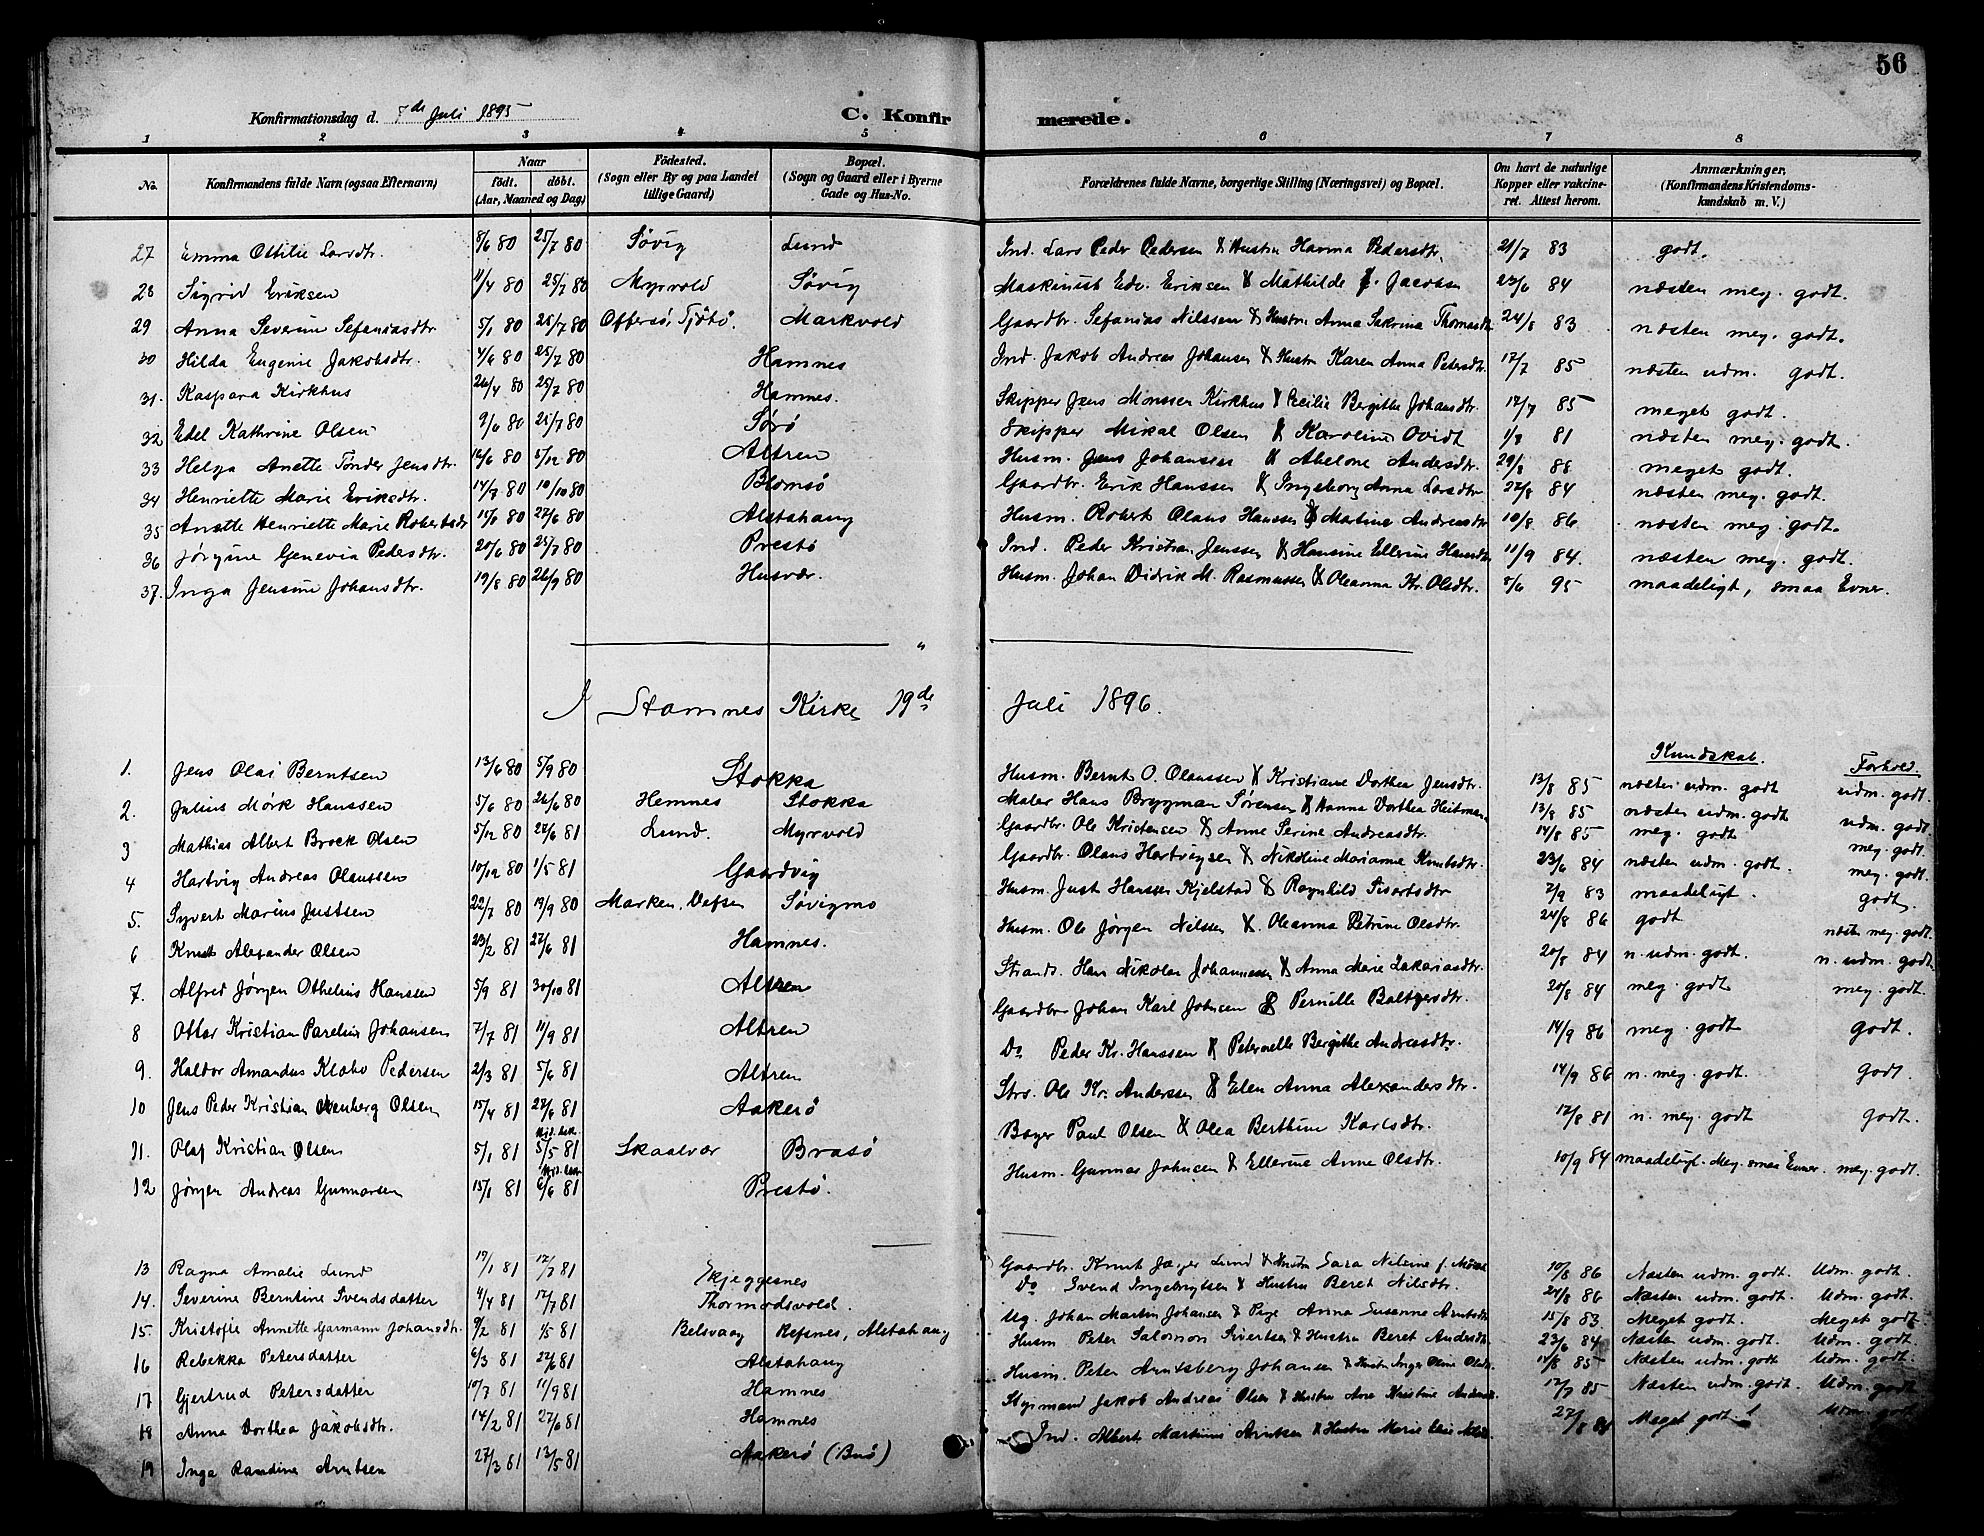 56
Konfirmationsdag d. 7de Juli 1895 C. Konfirmerede.
1 2 3 4 5 6 7 8
No. Konfirmandens fulde Navn (ogsaa Efternavn) Naar født. døbt. (Aar, Maaned og Dag) Fødested. (Sogn eller By og paa Landet tillige Gaard) Bopæl. (Sogn og Gaard eller i Byerne Gade og Hus-No. Forældrenes fulde Navne, borgerlige Stilling (Næringsvei) og Bopæl. Om havt de naturlige Kopper eller vakcineret. Attest herom. Anmærkninger, (Konfirmandens Kristendomskundskab m. V.)
27 Emma Ottilie Larsdtr. 8/6 80 25/7 80 Søvig Lund Ind. Lars Peder Pedersen & Hustru Hanna Pedersdtr. 21/7 83 godt.
28 Sigrid Eriksen 11/4 80 25/7 80 Myrvold Søvig Maskinist Edv. Eriksen & Mathilde f. Jacobsen 23/6 84 næsten meg. godt.
29 Anna Severine Sefaniasdtr 5/1 80 25/7 80 Offersø, Tjøtø. Markvold Gaardbr. Sefanias Nilssen & Hustru Anna Sakrina Thomasdtr. 24/8 83 næsten meg. godt.
30 Hilda Eugenie Jakobsdtr. 4/6 80 25/7 80 Hamnes Ind. Jakob Andreas Johansen & Hustru Karen Anna Petersdtr. 17/7 85 næsten udm. godt.
31. Kaspara Kirkhus 26/4 80 25/7 80 Hamnes. Skipper Jens Monssen Kirkhus & Cecilia Bergithe Johansdtr. 17/7 85 meget godt.
32 Edel Kathrine Olsen 9/6 80 25/7 80 Sørø Skipper Mikal Olsen & Karoline Ovidt 1/8 81 næsten meg. godt
33 Helga Anette Tønder Jensdtr. 16/6 80 5/12 80 Altren Husm. Jens Johansen & Abelone Andersdtr. 29/8 88 meget godt.
34 Henriette Marie Eriksdtr. 14/7 80 10/10 80 Blomsø Gaardbr. Erik Hanssen & Ingeborg Anna Larsdtr. 27/8 84 næsten meg. godt
35 Anette Henriette Marie Robertsdtr 15/1 80 27/6 80 Alstahaug Husm. Robert Olaus Hanssen & Martine Andreasdtr 10/8 86 næsten meg. godt.
36 Jørgine Genevia Pedersdtr. 20/6 80 25/7 80 Prestø Ind. Peder Kristian Jenssen & Hansine Ellerine Hansdtr 11/9 84. næsten meg. godt.
37. Inga Jensine Johansdtr. 19/8 80 26/9 80 Husvær. Husm. Johan Didrik M. Rasmussen & Oleanna Kr. Olsdtr. 5/6 95 maadeligt, smaa Evner.
I Stamnes Kirke 19de Juli 1896.
Kundskab. Forhold.
1. Jens Olai Berntsen 13/6 80 5/9 80 Stokka Husm. Bernt O. Olaussen & Kristiane Dorthea Jensdtr. 13/8 85 næsten udm. godt udm. godt.
2. Julius Mørk Hanssen 5/6 80 26/6 80 Hemnes Stokka Maler Hans Bryggman Sørensen & Hanna Dorthea Heitmann 13/8 85 næsten udm. godt udm. godt.
3 Mathias Albert Brock Olsen 5/12 80 26/6 81 Lund. Myrvold Gaardbr. Ole Kristensen & Anne Serine Andreasdtr. 14/8 85 meg. godt meg. godt.
4 Hartvig Andreas Olaussen 10/12 80 1/5 81 Gaardvig Gaardbr. Olaus Hartvigsen & Nikoline Marianne Knutsdtr. 23/6 84 næsten udm. godt. meg. godt.
5. Syvert Marius Justsen 22/7 80 19/9 80 Marken, Vefsen Søvigmo Husm. Just Hanssen Kjelstad & Ragnhild Sivertsdtr 7/9 83 maadeligt. godt.
6 Knut Alexander Olsen 23/2 81 27/6 81 Hamnes. Husm. Ole Jørgen Nilssen & Oleanna Petrine Olsdtr. 24/8 86 godt næsten meg. godt.
7. Alfred Jørgen Othelius Hanssen 5/9 81 30/10 81 Altren Strands. Hans Nikolai Johannessen & Anna Marie Zakariasdtr. 20/8 84 n. udm. godt. n. udm. godt.
8 Ottar Kristian Parelius Johansen 7/7 81 11/9 81 Altren Gaardbr Johan Karl Johnsen & Pernille Baltzersdtr. 20/8 84 meg. godt meg. godt.
9. Haldor Amandus Klabo Pedersen 2/3 81 5/6 81 Altren Do Peder Kr. Hanssen & Peternelle Bergithe Andreasdtr. 14/9 86 meg. godt godt.
10 Jens Peder Kristian Olsen 15/4 81 27/6 81 Aakerø Strs. Ole Kr. Anderssen & Elen Anna Alexandersdtr. 14/9 86 n. meg. godt. godt.
11. Olaf Kristian Olsen 5/1 81 5/5 81 Skaalvær Brasø Bager Paul Olsen & Olea Berthine Karlsdtr. 17/8 81 n. meg. godt godt.
12 Jørgen Andreas Gunnarsen 15/1 81 6/6 81 Prestø. Husm. Gunnar Johnsen & Ellerine Anne Olsdtr. 10/9 84 maadeligt. Meg. smaa Evner. meg. godt.
13 Ragna Amalie Lund 19/1 81 17/7 81 Skjeggesnes Gaardbr. Knut Jæger Lund & Hustru Sara Nilsine f. 10/8 86 Næsten udm. godt. Udm. godt.
14. Severine Berntine Svendsdatter 4/4 81 17/7 81 Thormodsvold. Do Svend Ingebrigtsen & Hustru Beret Nilsdtr. 24/8 86 Næsten udm. godt. Udm. godt.
15. Kristofie Annette Garmann Johansdtr. 9/2 81 1/5 81 Belsvaag Refsnes, Alstahaug Ug. Johan Martin Johansen & Pige Anna Susanne Arntsdtr 15/8 83 Meget godt. Meget godt
16 Rebekka Petersdatter 6/3 81 27/6 81 Alstahaug Husm Peter Salomon Sivertsen & Hustru Beret Andersdtr 23/6 84 Næsten udm. godt. Udm. godt.
17 Gjertrud Petersdatter 10/7 81 11/9 81 Hamnes Husm. Peter Arntsberg Johansen & Hustru Inger Oline Olsdtr. 14/8 85 Næsten udm. godt Udm. godt.
18 Anna Dorthea Jakobsdtr. 14/2 81 27/6 81 Hamnes Jakob Andreas Olsen & Hustru Ane Kristine 17/7 85 Næsten udm. godt. Udm. godt
19 Inga Randine Arntsen 27/3 81 13/5 81 Aakerø (Buø) Ind. Albert Martinus Arntsen & Hustru Marie Elise 27/8 Meget godt Udm. godt